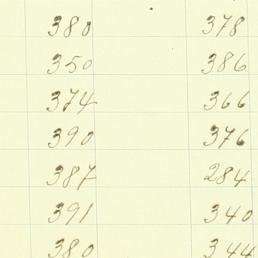 380 378
350 386
374 366
390 376
387 284
391 340
380 344